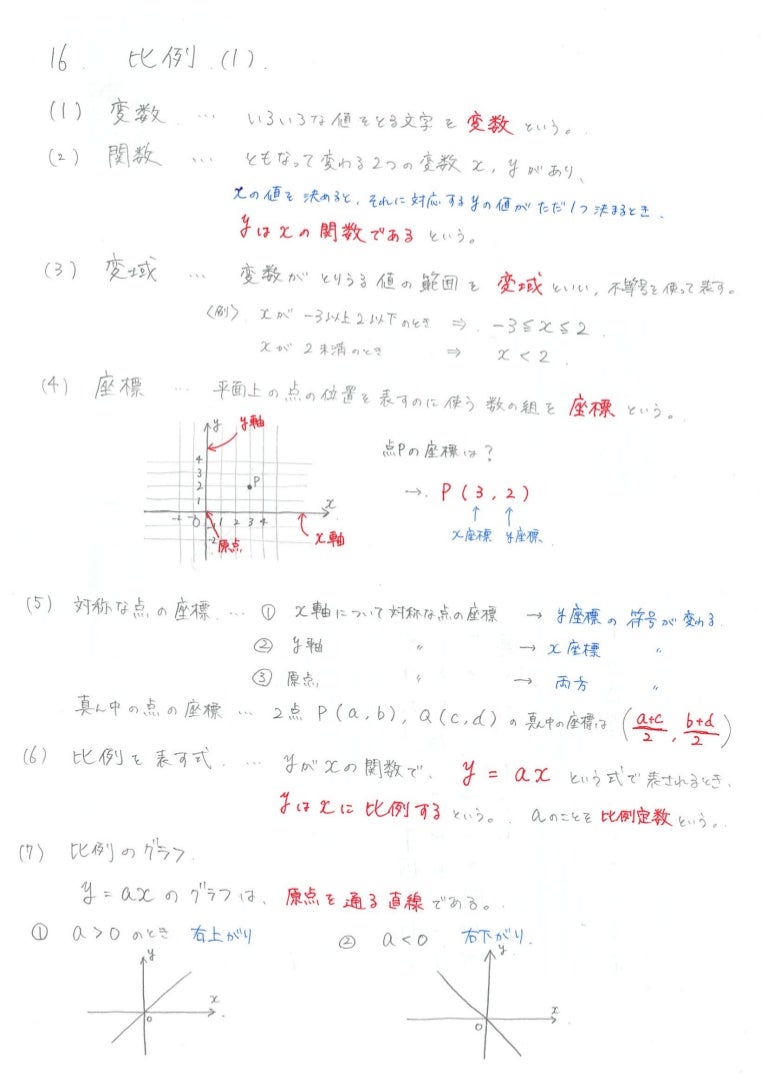 16. 比例 (1).
(1) 変数 … いろいろな値をとる文字を変数という。
(2) 関数 … ともなって変わる2つの変数 x, y があり、
xの値を決めると、それに対応するyの値がただ1つ決まるとき、
yはxの関数である という。
(3) 変域 … 変数がとりうる値の範囲を変域といい、不等号を使って表す。
〈例〉 xが -3以上2以下のとき ⇒ -3≦x≦2
xが 2未満のとき ⇒ x<2
(4) 座標 … 平面上の点の位置を表すのに使う数の組を座標という。
y y軸
4
3
2 P
1
-2 -1 0 1 2 3 4 x
-1
-2
原点 x軸
点Pの座標は?
→ P(3,2)
↑ ↑
x座標 y座標
(5) 対称な点の座標 … ① x軸について対称な点の座標 → y座標の符号が変わる
② y軸 〃 → x座標 〃
③ 原点 〃 → 両方 〃
真ん中の点の座標 … 2点 P(a,b), Q(c,d) の真ん中の座標は (a+c/2, b+d/2)
(6) 比例を表す式 … yがxの関数で、 y=ax という式で表されるとき、
yはxに比例するという。 aのことを比例定数という。
(7) 比例のグラフ
y=axのグラフは、原点を通る直線である。
① a>0のとき 右上がり ② a<0 右下がり
y x 0
y x 0